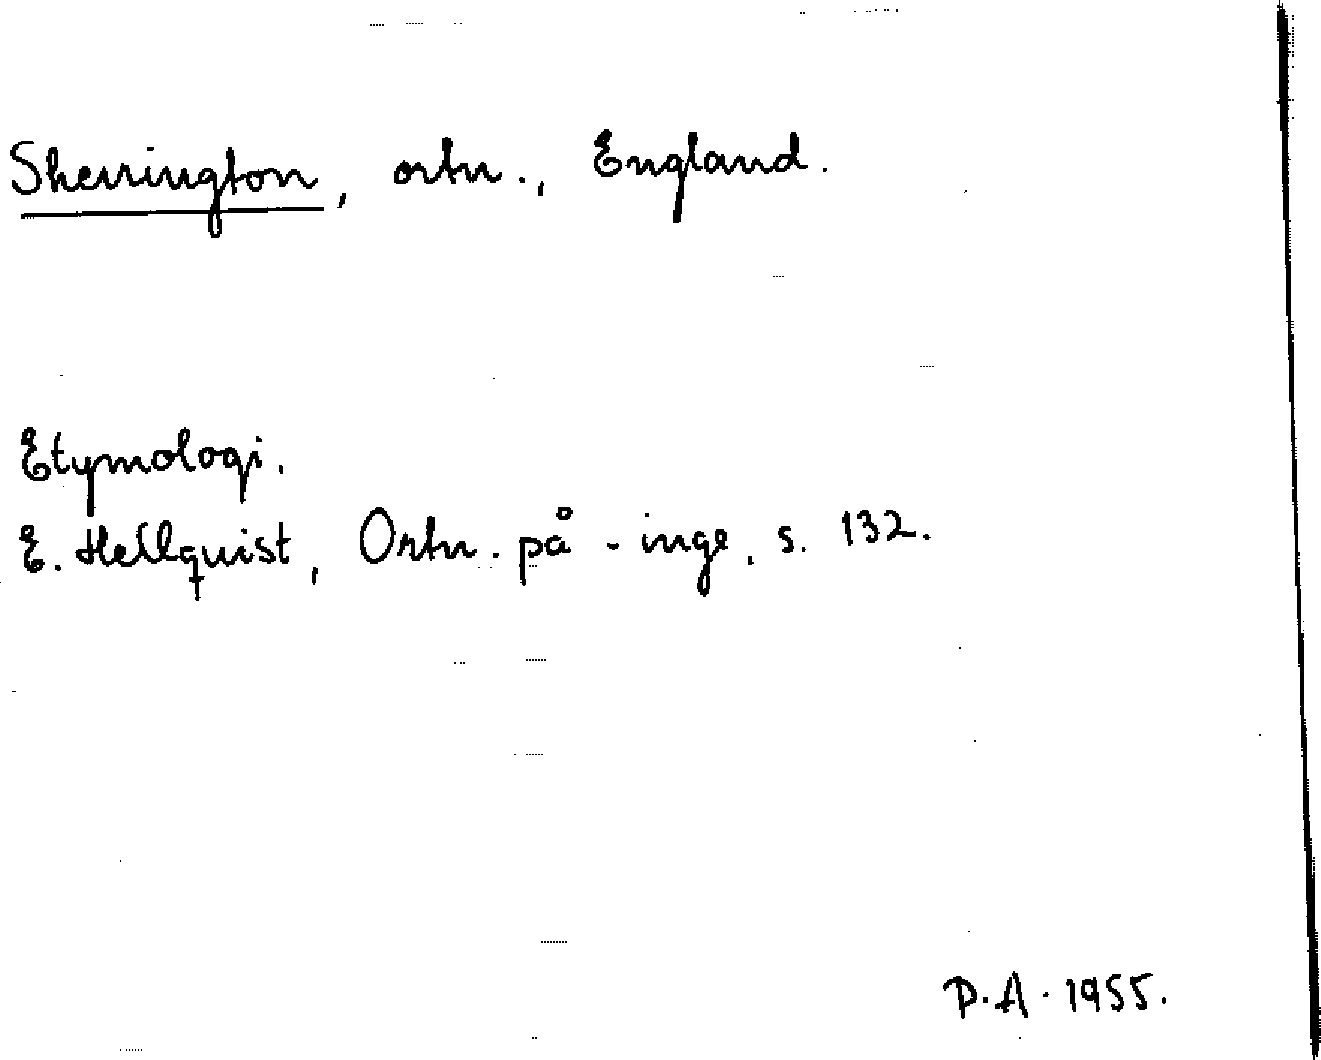 Sherrington, ortn., England.
Etymologi.
E. Hellquist, Ortn. på -inge, s. 132.
P.A. 1955.